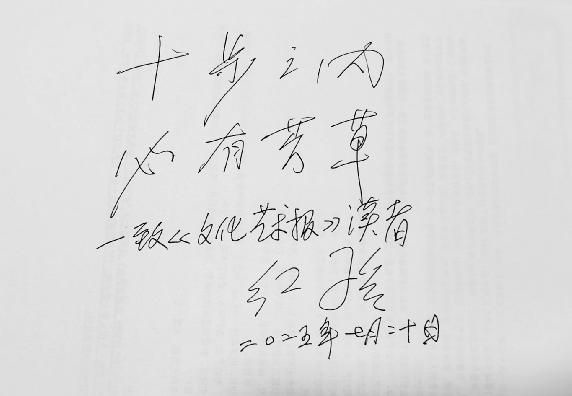 十步之内
必有芳草
一致《文化艺术报》读者
红孩
二〇二五年七月二十日